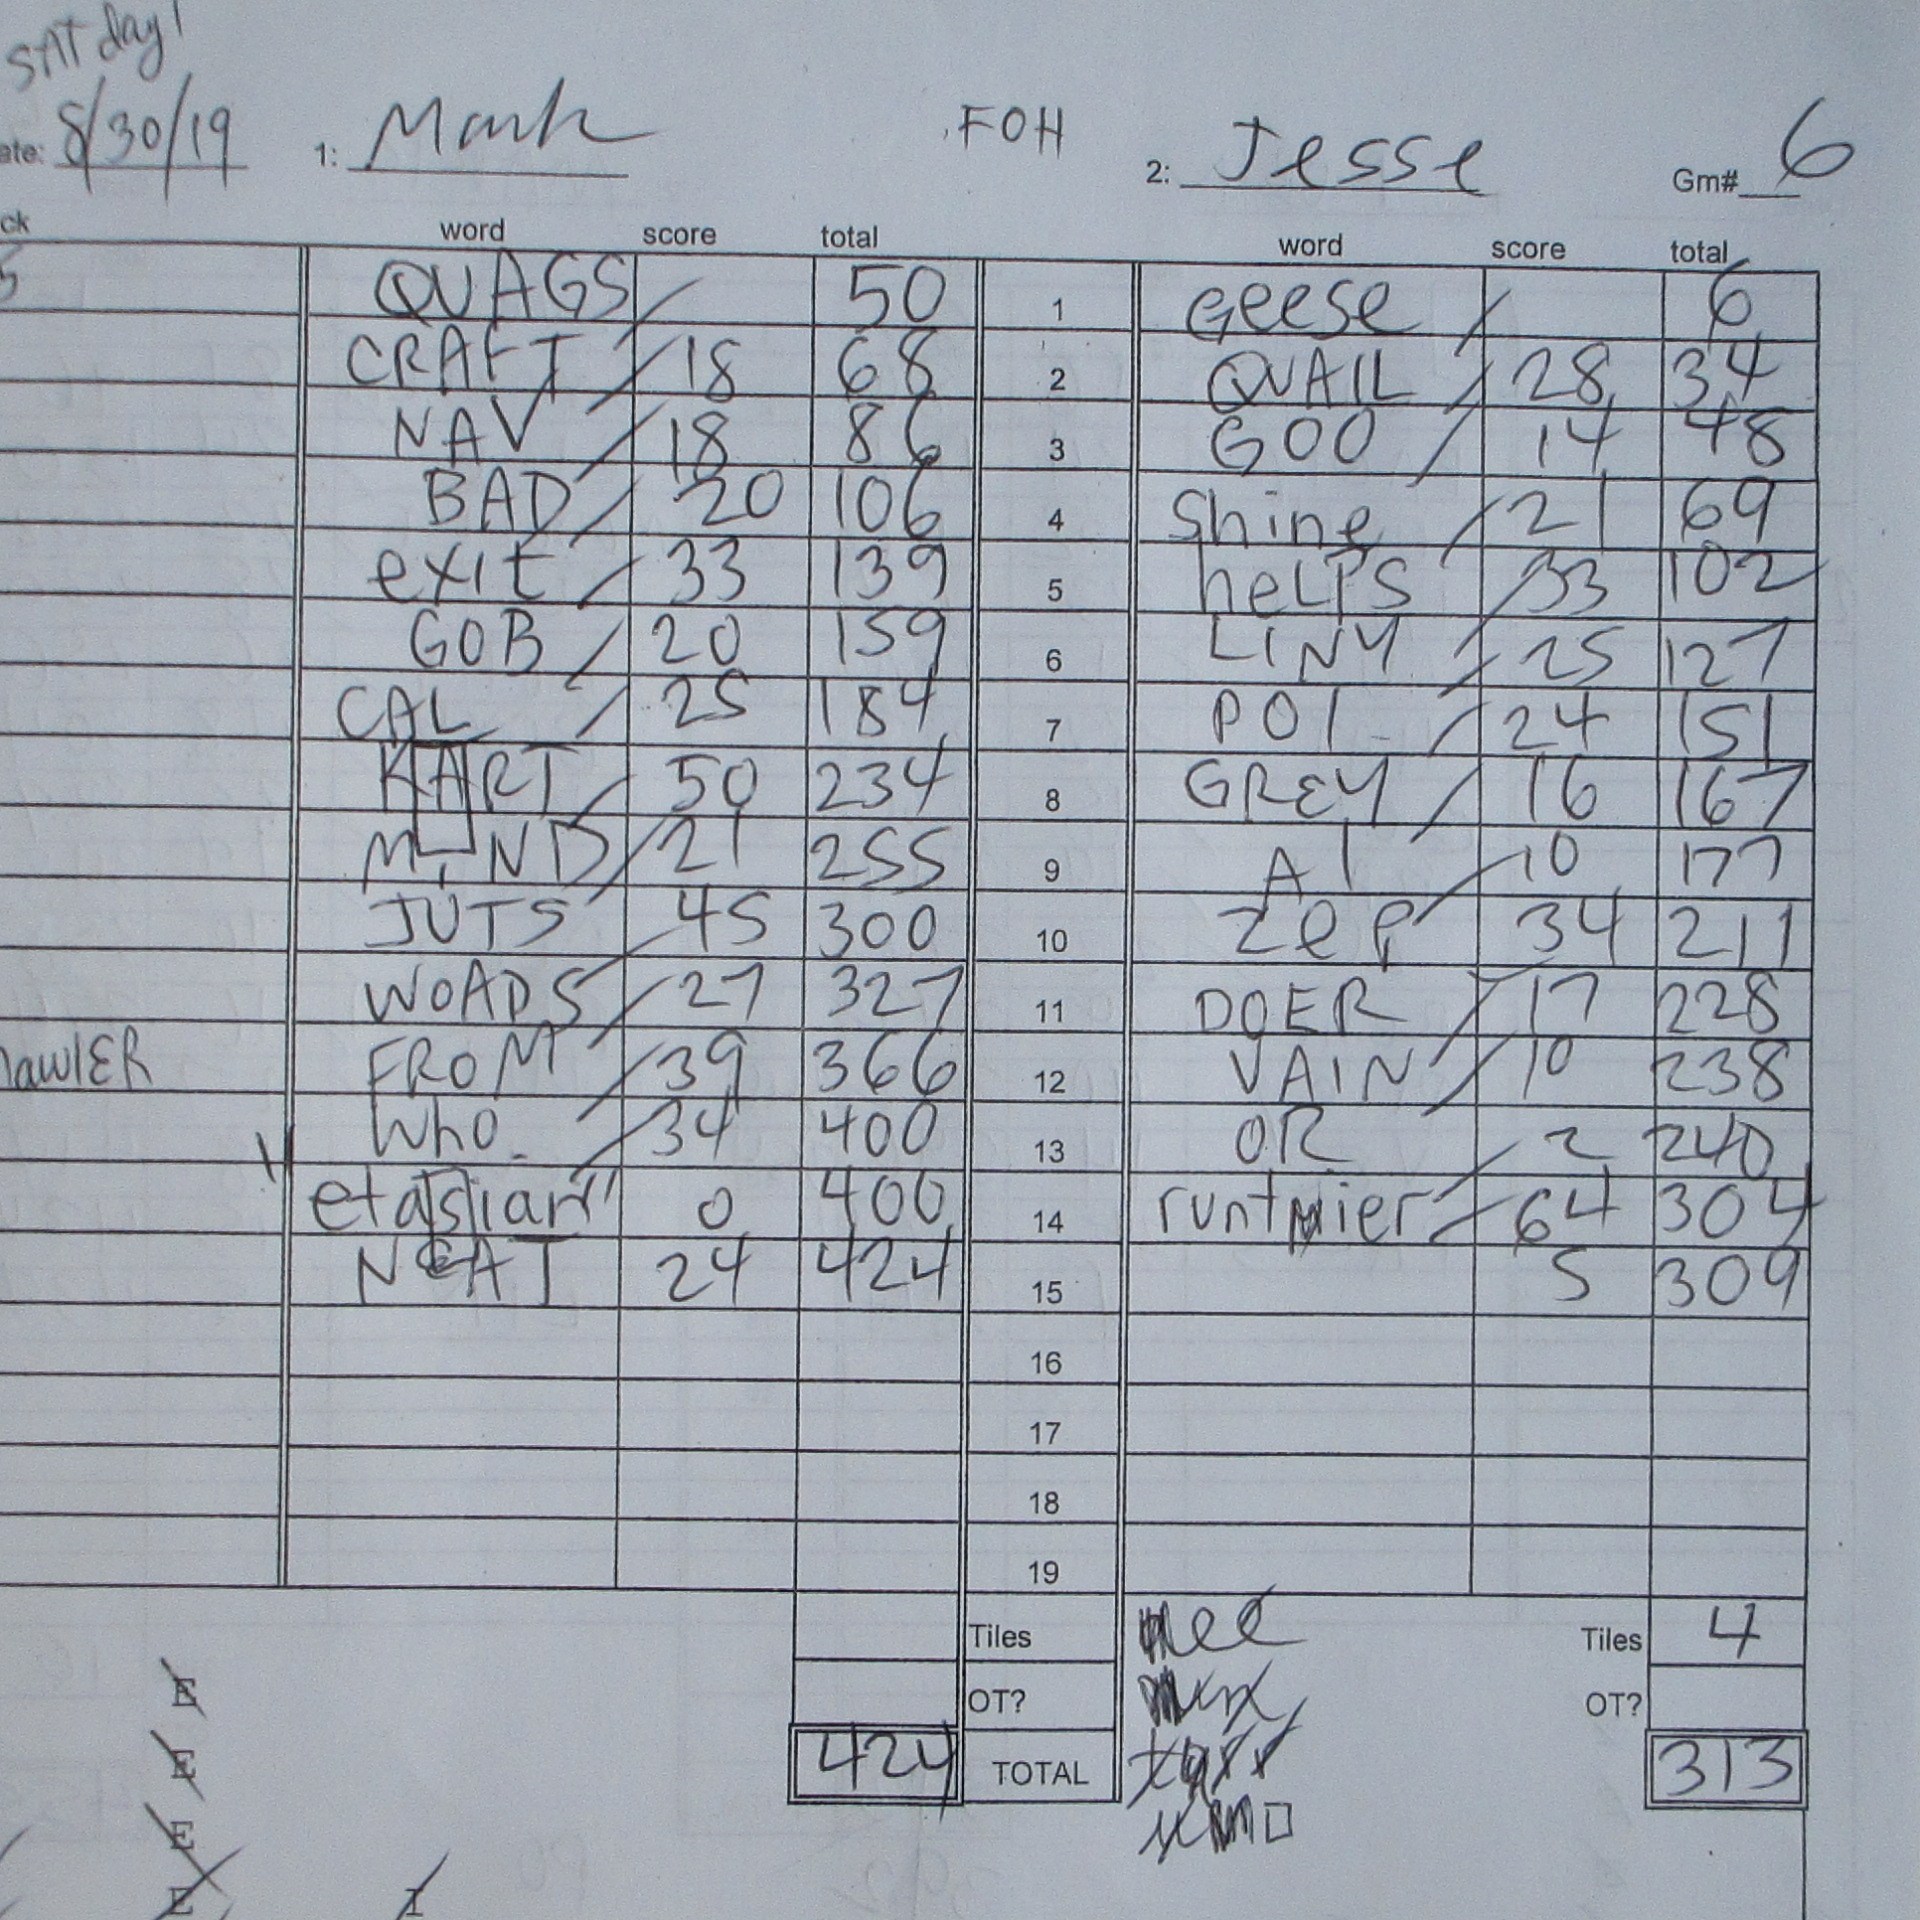 SAT day!
ate: 8/30/19 1: Mark FOH 2: Jesse Gm# 6
ck word score total word score total
5 QUAGS 50 1 Geese 6
CRAFT 18 68 2 QUAIL 28 34
NAV 18 86 3 GOO 14 48
BAD 20 106 4 Shine 21 69
exit 33 139 5 heLPS 33 102
GOB 20 159 6 LINY 25 127
CAL 25 184 7 POI 24 151
KART 50 234 8 GREY 16 167
MiND 21 255 9 AI 10 177
JUTS 45 300 10 Zep 34 211
WOADS 27 327 11 DOER 17 228
awlER FROM 39 366 12 VAIN 10 238
Who 34 400 13 OR 2 240
"etasian" 0 400 14 runtmier 64 304
NeAT 24 424 15 5 309
16
17
18
19
Tiles Tiles 4
OT? OT?
424 TOTAL 313
E
E
E
E I